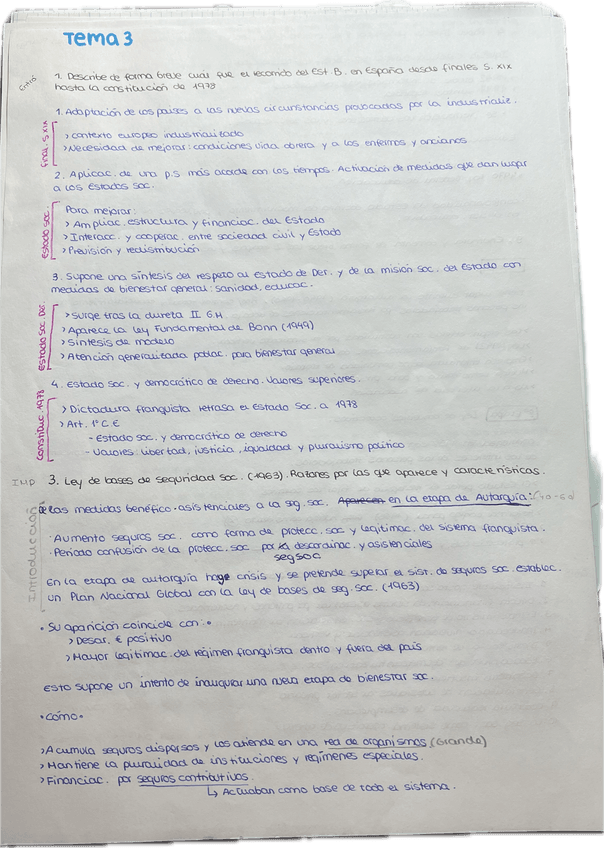 Tema 3
1. Describe de forma breve cual fue el recorrido del Est. B. en España desde finales S. XIX
hasta la constitución de 1978
1. Adaptación de los países a las nuevas circunstancias provocadas por la industrializ.
final. S XIX
> contexto europeo industrializado
> Necesidad de mejorar: condiciones vida obrera y a los enfermos y ancianos
2. Aplicac. de una p.s más acorde con los tiempos. Activación de medidas que dan lugar
a los Estados Soc.
Estado Soc.
Para mejorar:
> Ampliac. estructura y financiac. del Estado
> Interacc. y cooperac. entre sociedad civil y Estado
> Previsión y redistribución
3. Supone una síntesis del respeto al Estado de Der. y de la misión Soc. del Estado con
medidas de bienestar general: sanidad, educac.
Estado Soc. Der.
> Surge tras la II G.M
> Aparece la Ley Fundamental de Bonn (1949)
> Síntesis de modelo
> Atención generalizada poblac. para bienestar general
4. Estado Soc. y democrático de derecho. Valores superiores.
Constituc. 1978
> Dictadura franquista retrasa el Estado Soc. a 1978
> Art. 1º C E
- Estado soc. y democrático de derecho
- Valores: libertad, justicia, igualdad y pluralismo político
IMP 3. Ley de bases de seguridad Soc. (1963). Razones por las que aparece y características.
Introducción
De las medidas benéfico-asistenciales a la seg. soc. Aparecen en la etapa de Autarquía:
· Aumento seguros soc. como forma de protecc. soc y legitimac. del sistema franquista.
· Periodo confusión de la protecc. soc. por descoordinac. y asistenciales
seg soc
En la etapa de autarquía hay crisis y se pretende superar el sist. de seguros soc. establec.
un Plan Nacional Global con la ley de bases de seg. soc. (1963)
• Su aparición coincide con:
> Desar. € positivo
> Mayor legitimac. del régimen franquista dentro y fuera del país
Esto supone un intento de inaugurar una nueva etapa de bienestar soc.
• Cómo •
> Acumula seguros dispersos y los atiende en una red de organismos (Grande)
> Mantiene la pluralidad de instituciones y regímenes especiales.
> Financiac. por seguros contributivos
↳ Actuaban como base de todo el sistema.